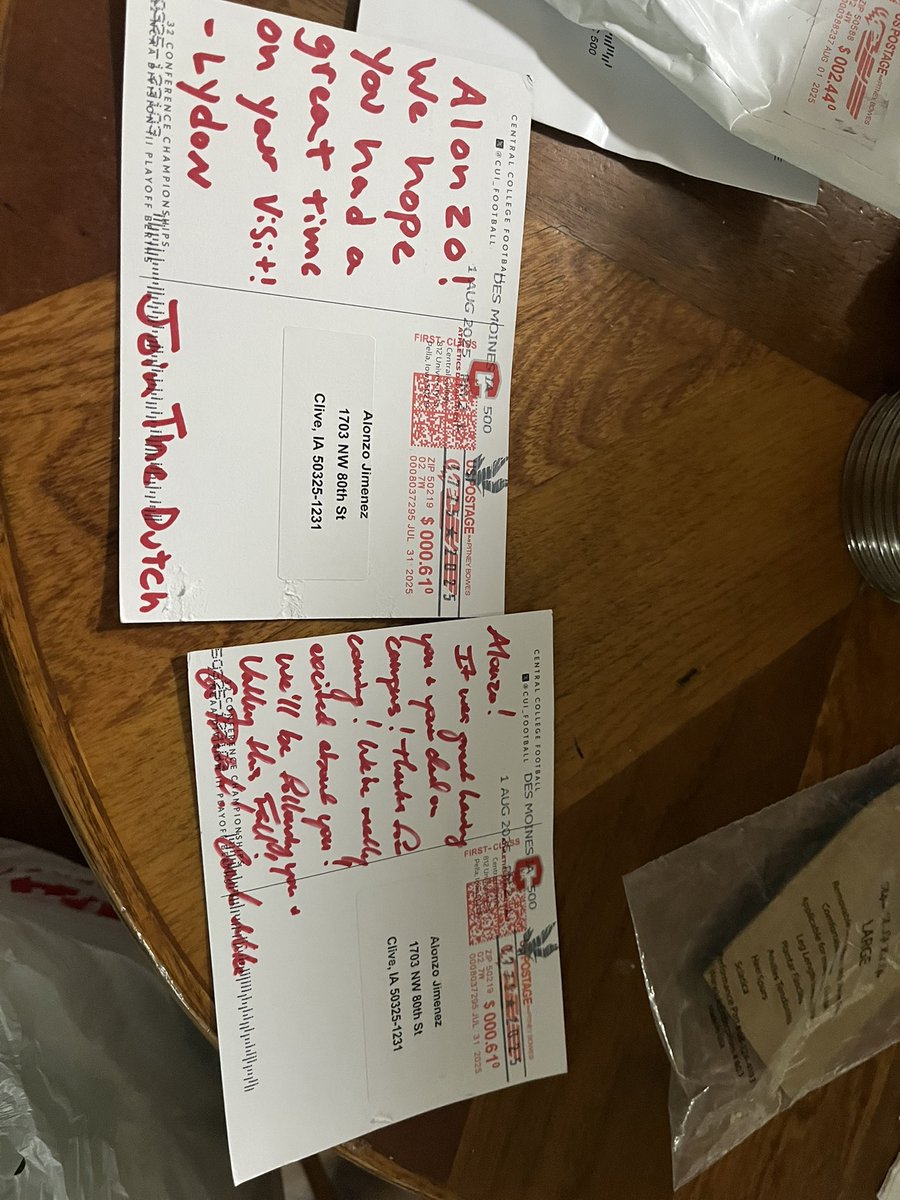 CENTRAL COLLEGE FOOTBALL
@CUI_FOOTBALL
DES MOINES IA 500
1 AUG 2025
Alonzo!
We hope
you had a
great time
on your visit!
- Lydon
Join The Dutch
32 CONFERENCE CHAMPIONSHIPS
DIVISION III PLAYOFF BERTHS
FIRST-CLASS
US POSTAGE PITNEY BOWES
ZIP 50219 $ 000.61⁰
02 7W
0008037295 JUL 31 2025
Alonzo Jimenez
1703 NW 80th St
Clive, IA 50325-1231
CENTRAL COLLEGE FOOTBALL
@CUI_FOOTBALL
DES MOINES 500
1 AUG 2025
Alonzo!
It was great having
you & your dad on
campus! Thanks for
coming! We're really
excited about you!
We'll be following you &
Valley this Fall!
CONFERENCE CHAMPIONSHIPS
PLAYOFF
FIRST-CLASS
US POSTAGE PITNEY BOWES
ZIP 50219 $ 000.61⁰
02 7W
0008037295 JUL 31 2025
Alonzo Jimenez
1703 NW 80th St
Clive, IA 50325-1231
US POSTAGE PITNEY BOWES
$ 002.44⁰
AUG 01 2025
500
LARGE
Sciatica